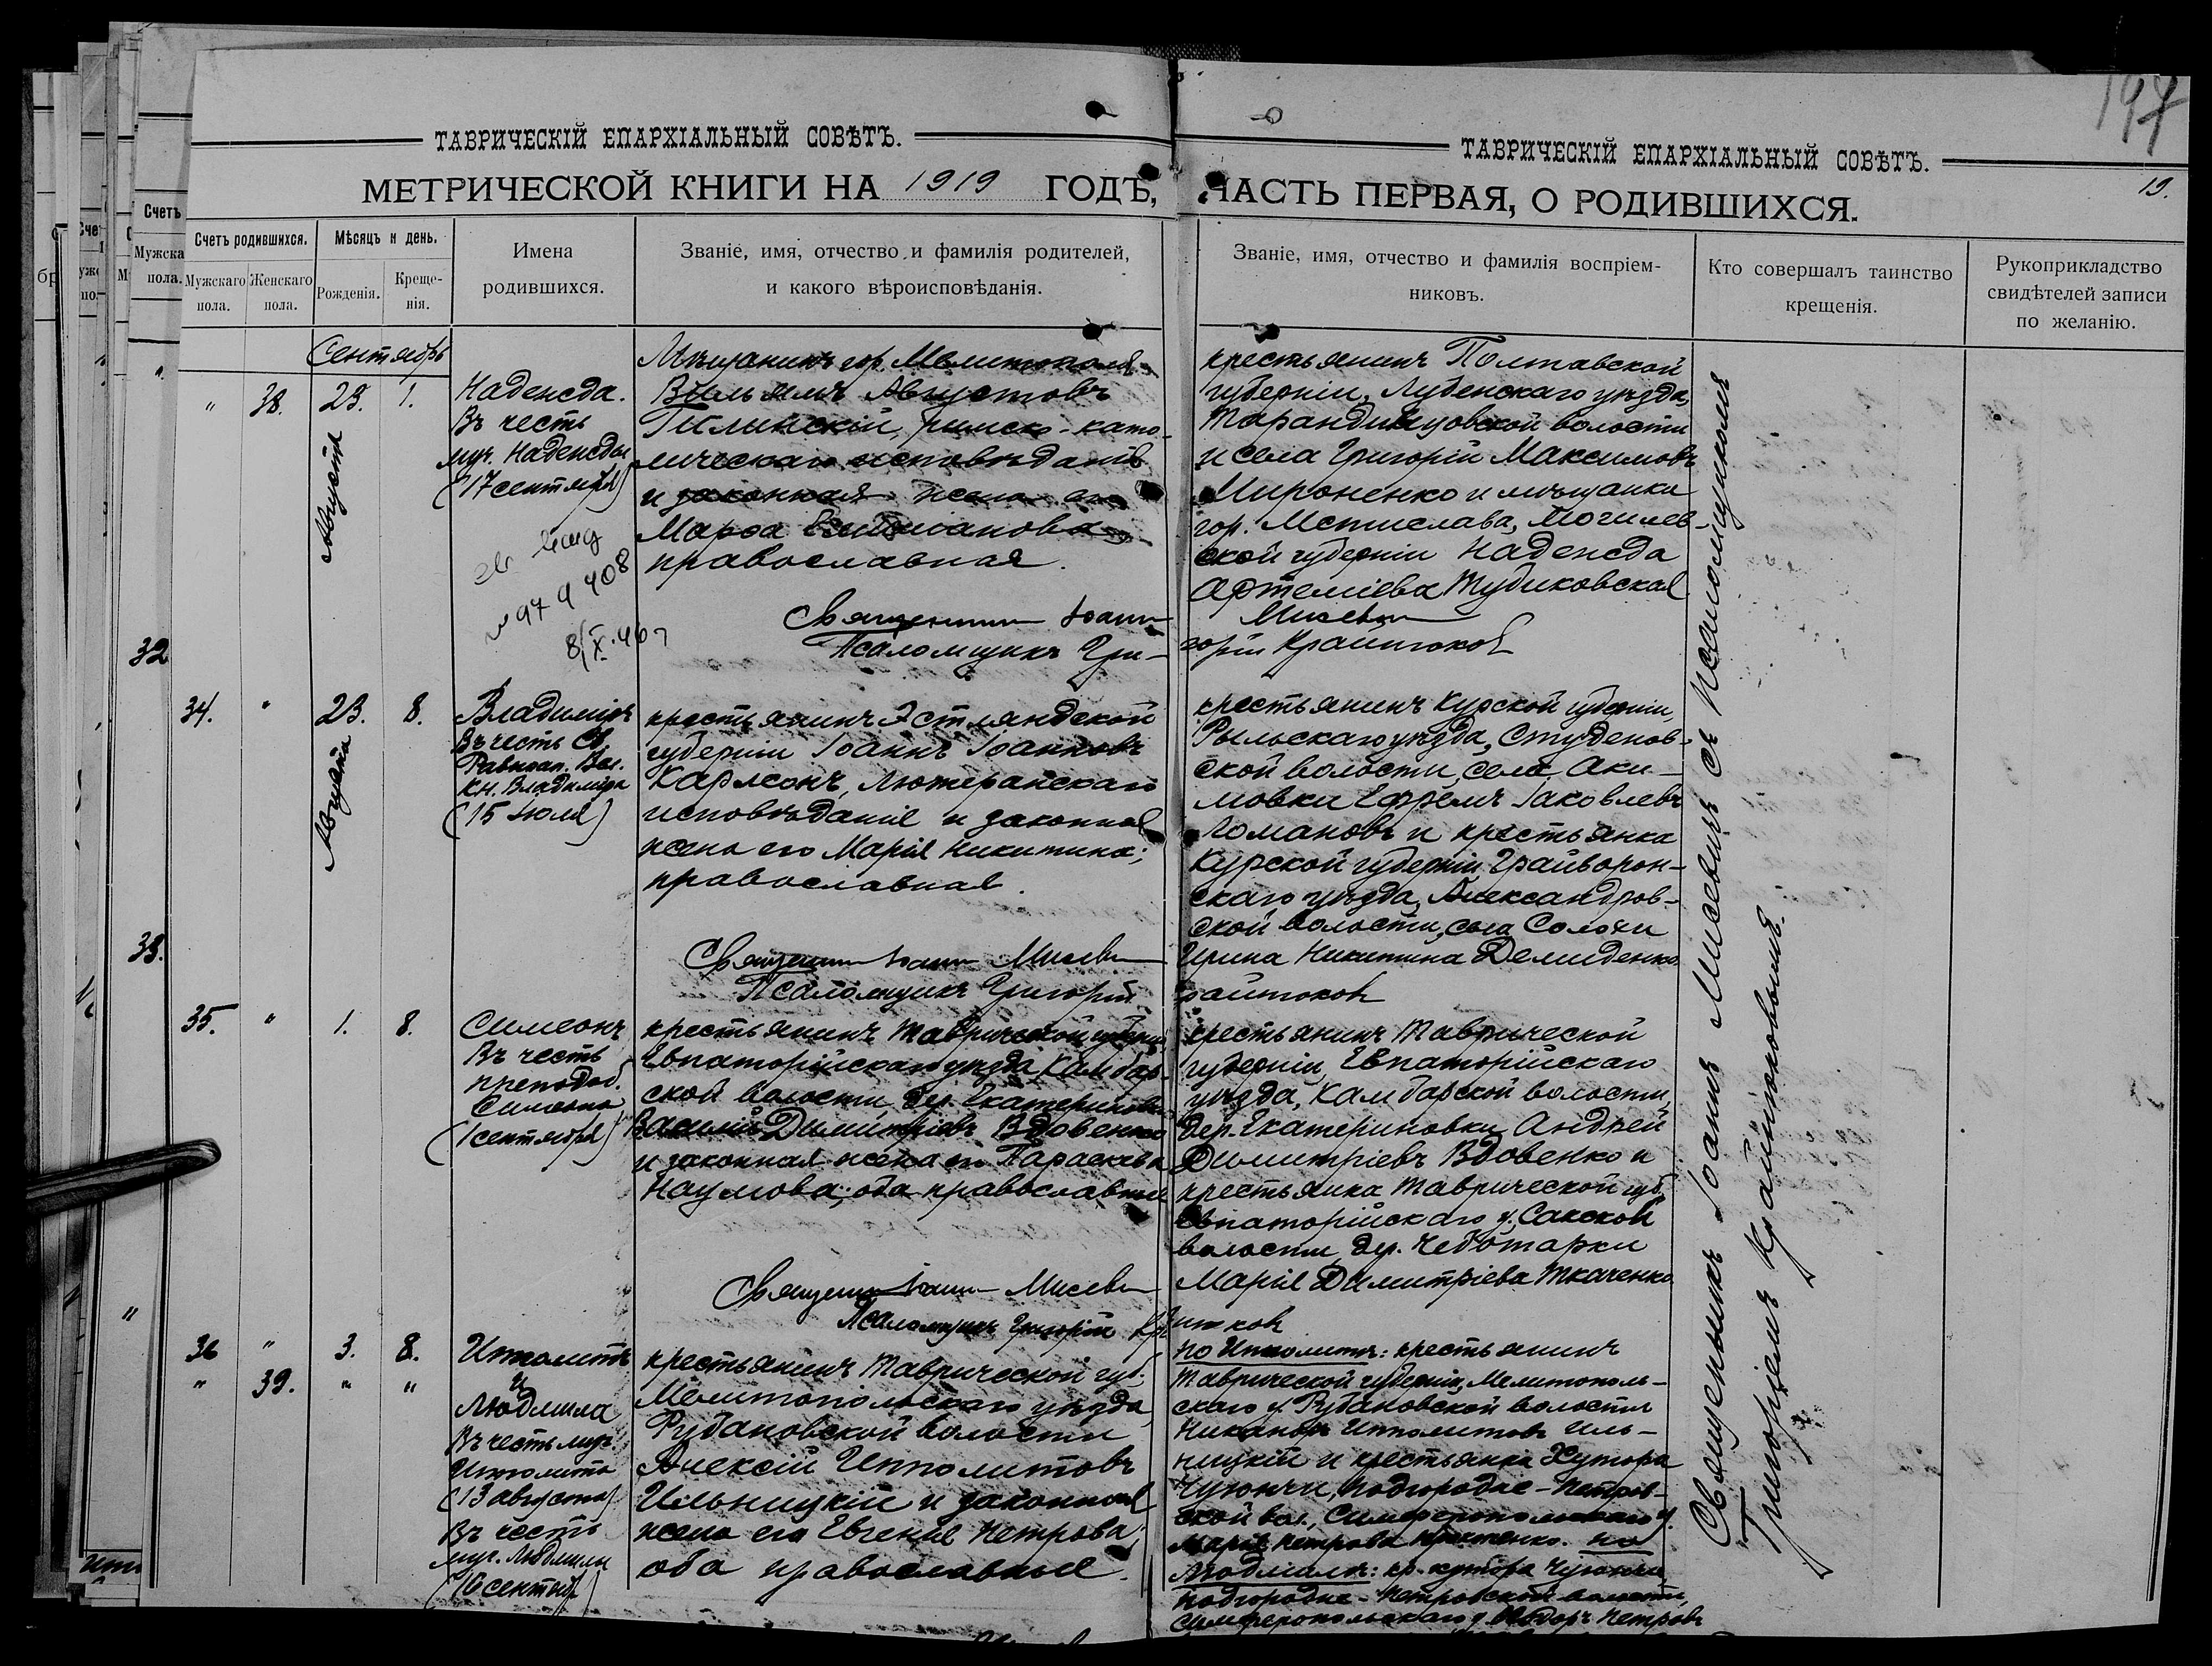 197
ТАВРИЧЕСКІЙ ЕПАРХІАЛЬНЫЙ СОВѢТЪ.
МЕТРИЧЕСКОЙ КНИГИ НА 1919 ГОДЪ,
Счетъ родившихся.
Мужскаго пола.
Женскаго пола.
Мѣсяцъ и день.
Рожденія.
Креще-
нія.
Имена
родившихся.
Званіе, имя, отчество и фамилія родителей,
и какого вѣроисповѣданія.
ТАВРИЧЕСКІЙ ЕПАРХІАЛЬНЫЙ СОВѢТЪ.
19.
ЧАСТЬ ПЕРВАЯ, О РОДИВШИХСЯ.
Званіе, имя, отчество и фамилія воспріем-
никовъ.
Кто совершалъ таинство
крещенія.
Рукоприкладство
свидѣтелей записи
по желанію.
Счетъ
Мужска
пола.
32
33.
Сентябрь
" 38. 23. 1.
Августа
Надежда.
Въ честь
муч. Надежды
(17 сентября)
8/X.46
Мѣщанинъ гор. Мелитополя
Вильямъ Августовъ
римско-като-
лическаго исповѣданія
и законная жена его
Марфа
православная.
Священникъ Іоаннъ
Псаломщикъ Гри-
крестьянинъ Полтавской
губерніи, Лубенскаго уѣзда,
волости
и села Григорій Максимовъ
Мироненко и мѣщанка
гор. Мстислава, Могилев-
ской губерніи Надежда
Артеміева
Мисевичъ
горій Крайтюковъ
34. " 23. 8.
Августа
Владиміръ
Въ честь Св.
Равноап. Вел.
Кн. Владиміра
(15 Іюля)
крестьянинъ Эстляндской
губерніи Іоаннъ Іоанновъ
Карлсонъ, Лютеранскаго
исповѣданія и законная
жена его Марія Никитина;
православная.
Священникъ Іоаннъ Мисевичъ
Псаломщикъ Григорій
крестьянинъ Курской губерніи,
Рыльскаго уѣзда, Студенов-
ской волости, села Аки-
мовки Ефремъ Іаковлевъ
Ломановъ и крестьянка
Курской губерніи, Грайворон-
скаго уѣзда, Александров-
ской волости, села Солохи
Ирина Никитина Демиденко
райтюковъ
35. " 1. 8.
Симеонъ
Въ честь
преподоб.
Симеона
(1 сентября)
крестьянинъ Таврической губерніи,
Евпаторійскаго уѣзда, Камбар-
ской волости, дер. Екатериновки
Василій Димитріевъ Вдовенко
и законная жена его Параскева
Наумова; оба православные
Священникъ Іоаннъ Мисевичъ
Псаломщикъ Григорій Кра
крестьянинъ Таврической
губерніи, Евпаторійскаго
уѣзда, Камбарской волости,
дер. Екатериновки Андрей
Димитріевъ Вдовенко и
крестьянка Таврической губ.
Евпаторійскаго у., Сакской
волости, дер. Чеботарки
Марія Димитріева Ткаченко.
36 " 3. 8.
" 39. " "
Ипполитъ
и
Людмила
Въ честь муч.
Ипполита
(13 августа)
Въ честь
муч. Людмилы
(16 сентябр)
крестьянинъ Таврической губ.
Мелитопольскаго уѣзда,
Рубановской волости
Алексій Ипполитовъ
Ильницкій и законная
жена его Евгенія Петрова;
оба православные.
По Ипполитѣ: крестьянинъ
Таврической губерніи, Мелитополь-
скаго у. Рубановской волости
Никаноръ Ипполитовъ Иль-
ницкій и крестьянка Хутора
Чуюнчи, Подгородне-Петров-
ской вол., Симферопольскаго у.
Марія Петрова По
Людмилѣ: кр. хутора Чуюнчи,
Подгородне-Петровской волости,
Симферопольскаго у. Петровъ
Священникъ Іоаннъ Мисевичъ съ Псаломщикомъ
Григоріемъ Крайтюковымъ.